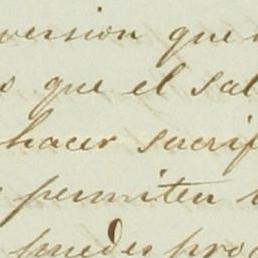 version que
s que el sal
hacer sacrif
permiten
puedes pro